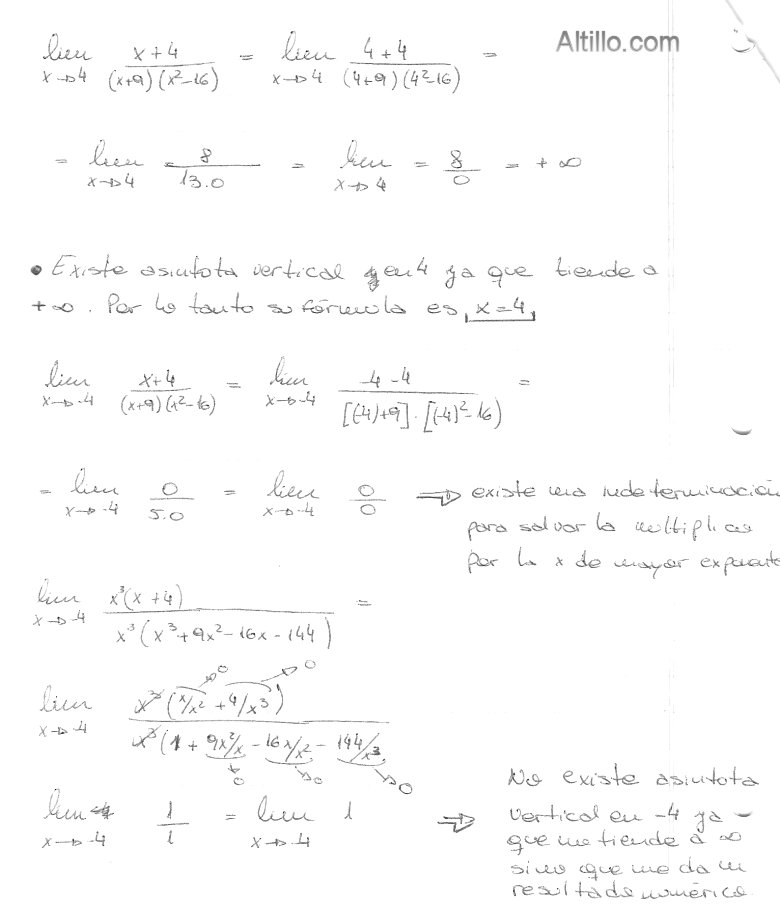 Altillo.com
lim x→4 x+4/(x+9)(x²-16) = lim x→4 4+4/(4+9)(4²-16) =
= lim x→4 = 8/13.0 = lim x→4 = 8/0 = +∞
• Existe asintota vertical en 4 ya que tiende a
+∞. Por lo tanto su fórmula es x=4
lim x→-4 x+4/(x+9)(x²-16) = lim x→-4 4-4/[(-4)+9].[(-4)²-16) =
= lim x→-4 0/5.0 = lim x→-4 0/0 ⇒ existe una indeterminación
para salvar la multiplico
por la x de mayor exponente
lim x→-4 x³(x+4)/x³(x³+9x²-16x-144) =
lim x→-4 x³(x/x²+4/x³)/x³(1+9x²/x-16x/x²-144/x³
0 0
0 0 0
lim x→-4 1/1 = lim x→-4 1 ⇒
No existe asintota
vertical en -4 ya
que no tiende a ∞
sino que me da un
resultado numérico